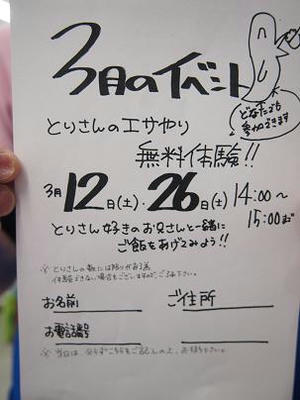 3月のイベント
どなたでも
参加できます
とりさんのエサやり
無料体験!!
3月12日(土)・26日(土) 14:00〜
15:00まで
とりさん好きのお兄さんと一緒に
ご飯をあげてみよう!!
※とりさんの数には限りがある為
体験できない場合もございますのでご了承下さい。
お名前 ご住所
お電話番号
※当日は、必ずこちらをご記入の上、お持ち下さい。